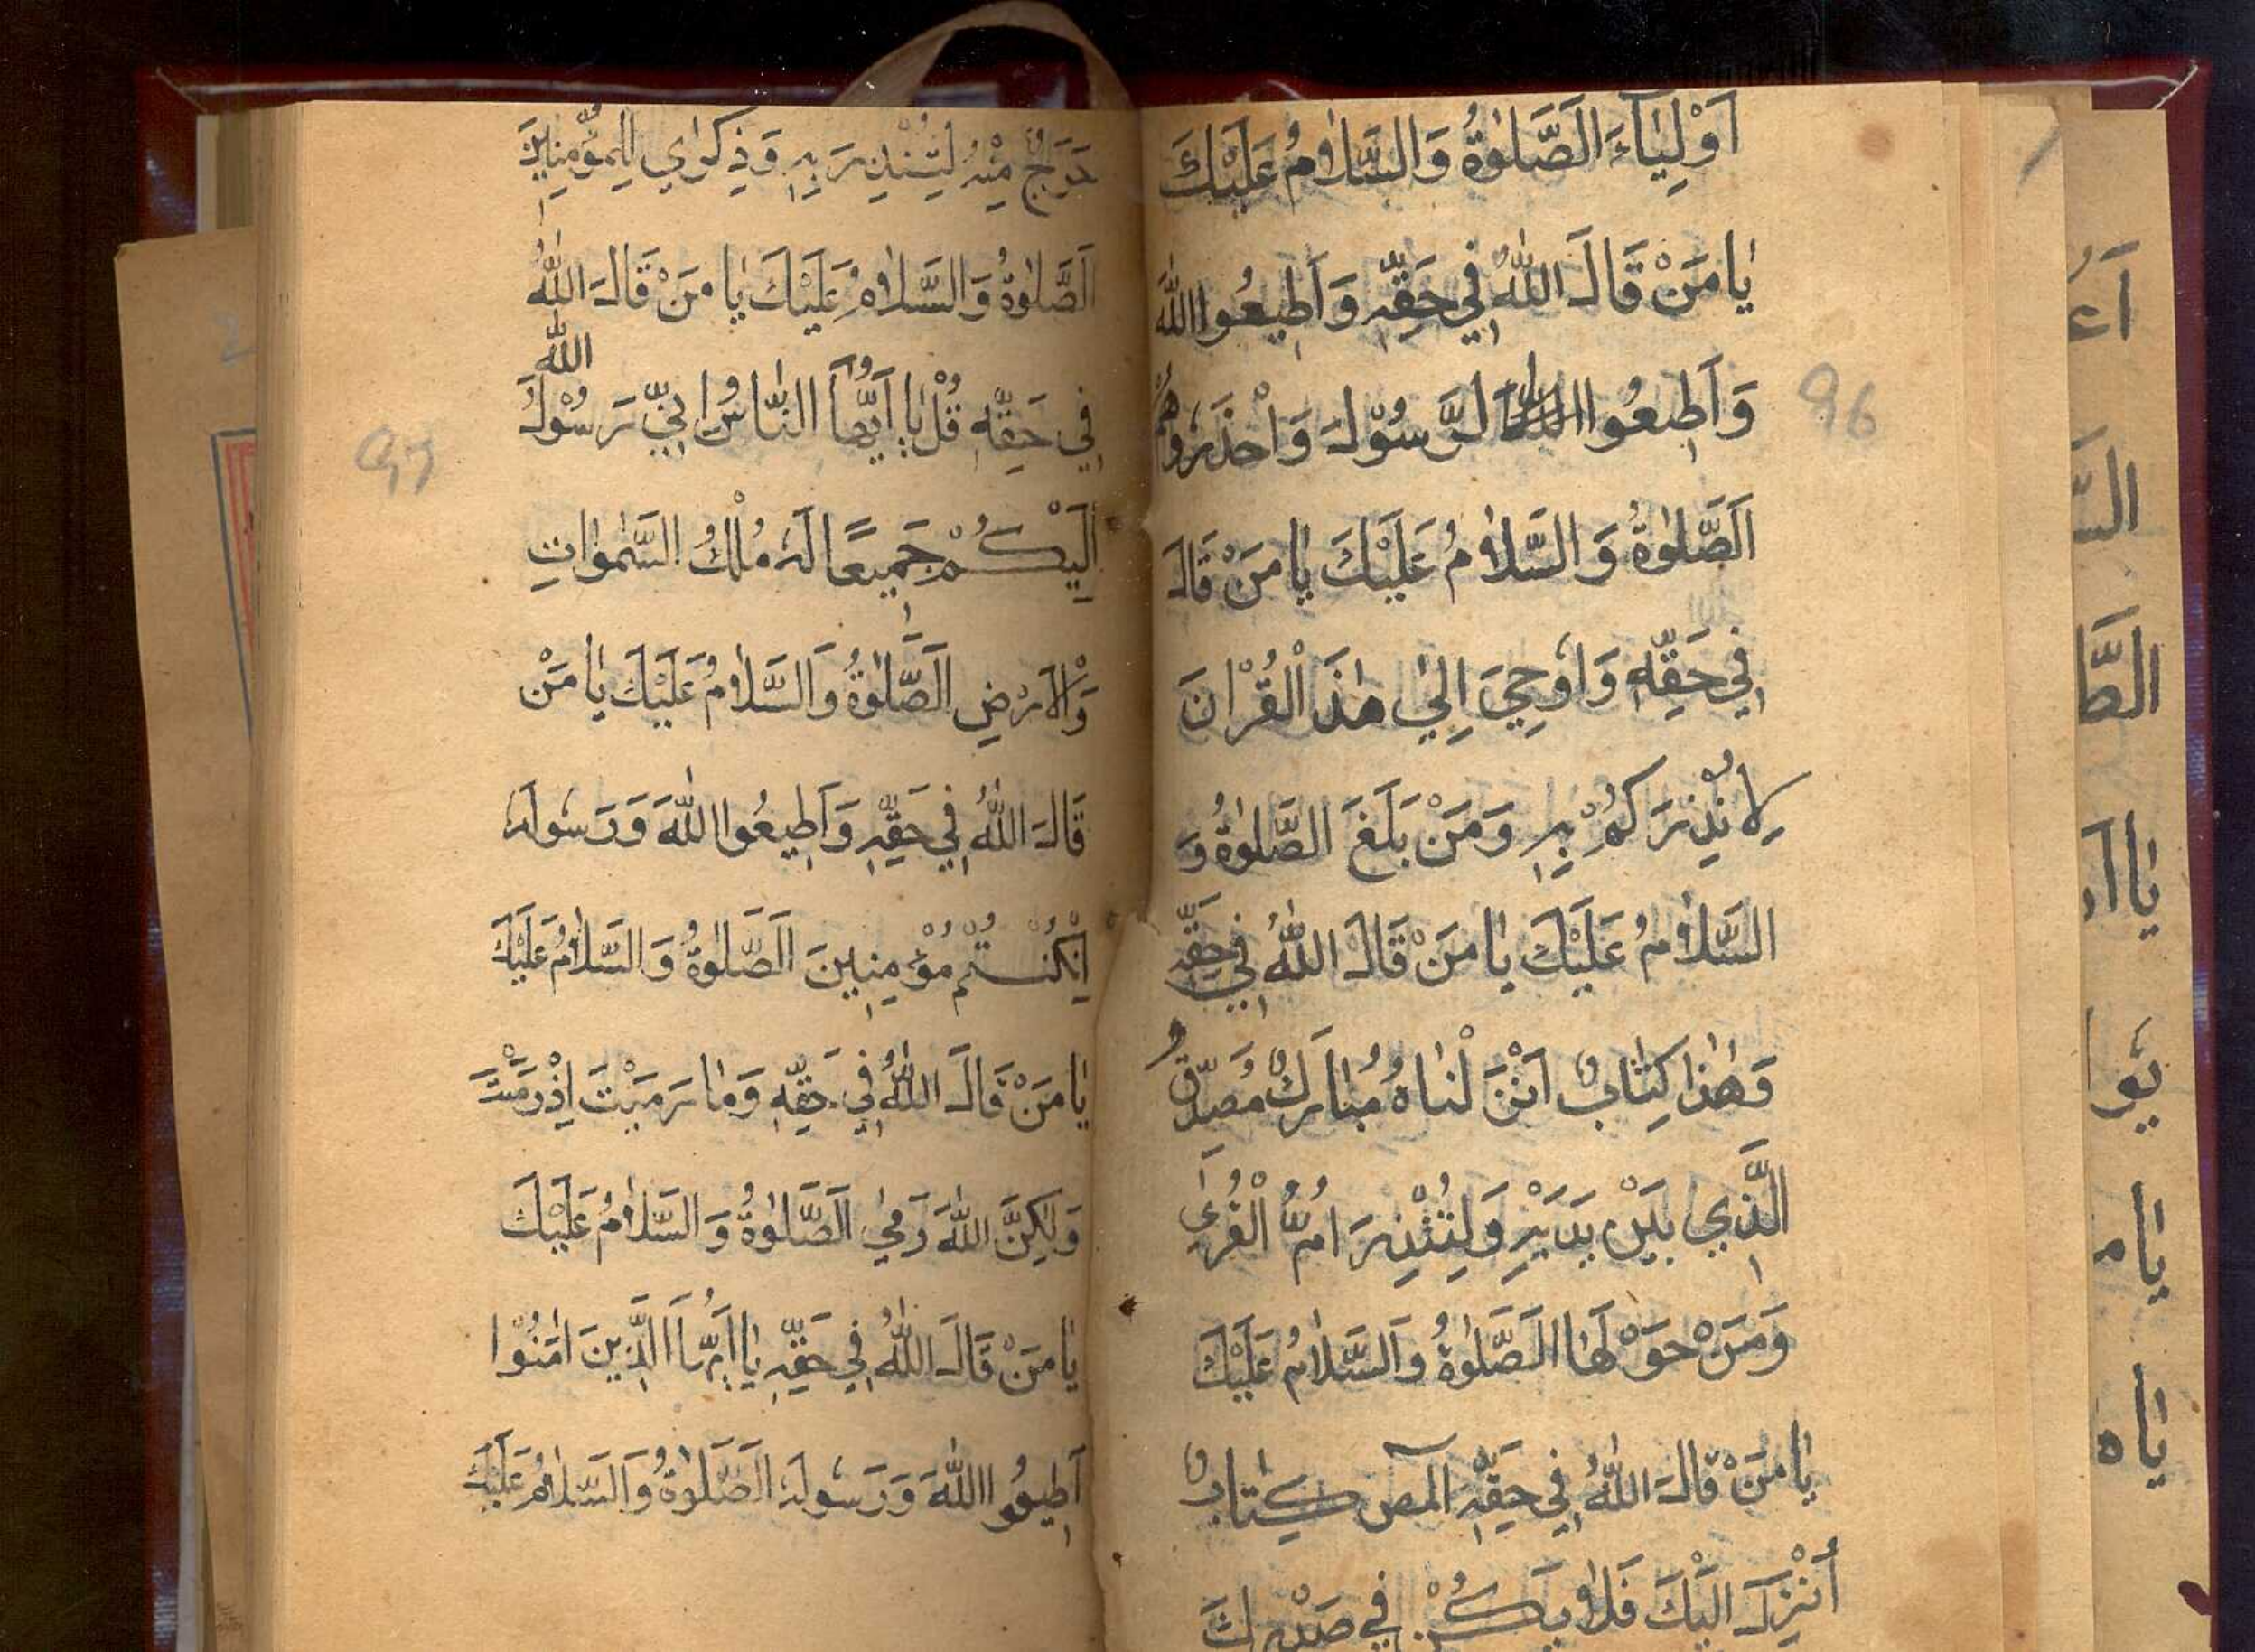 اَوْلِيٰاءَ اَلصَّلوٰةُ وَالسَّلاٰمُ عَلَيْكَ
يٰا مَنْ قَالَ اللّٰهُ فِي حَقِّهِ وَاَطِيعُوا اللّٰهَ
وَاَطِعُوا الرَّسُوْلَ وَاحْذَرُوهُمْ
اَلصَّلوٰةُ وَالسَّلاٰمُ عَلَيْكَ يٰا مَنْ قَالَ
فِي حَقِّهِ وَاُوحِيَ اِلٰي هٰذَ الْقُرْانَ
لِاُنْذِرَكُمْ بِهِ وَمَنْ بَلَغَ الصَّلوٰةُ وَ
السَّلاٰمُ عَلَيْكَ يٰا مَنْ قَالَ اللّٰهُ فِي حَقِّهِ
وَهٰذٰا كِتٰابٌ اَنْزَلْنٰاهُ مُبٰارَكٌ مُصَدِّقُ
الَّذِي بَيْنَ يَدَيْهِ وَلِتُنْذِرَ اُمَّ الْقُرٰي
وَمَنْ حَوْلَهٰا الَصَّلوٰةُ وَالسَّلاٰمُ عَلَيْكَ
يٰا مَنْ قَالَ اللّٰهُ فِي حَقِّهِ آلمص كِتٰابٌ
اُنْزِلَ اِلَيْكَ فَلاٰ يَكُنْ فِي صَدْرِكَ
حَرَجٌ مِنْهُ لِتُنْذِرَ بِهِ وَذِكْرٰي لِلمُؤْمِنِينَ
اَلصَّلوٰةُ وَالسَّلاٰمُ عَلَيْكَ يٰا مَنْ قَالَ اللّٰهُ
فِي حَقِّهِ قُلْ يٰا اَيُّهَا النّٰاسُ اِنِّي رَسُوْلُ اللّٰه
اِلَيْكُمْ جَمِيعًا لَهُ مُلْكُ السَّمٰوٰاتِ
وَالْاَرْضِ اَلصَّلوٰةُ وَالسَّلاٰمُ عَلَيْكَ يٰا مَنْ
قَالَ اللّٰهُ فِي حَقِّهِ وَاَطِيعُوا اللّٰهَ وَرَسُولَهُ
اِنْكُنْتُمْ مُؤْمِنِينَ اَلصَّلوٰةُ وَالسَّلاٰمُ عَلَيْكَ
يٰا مَنْ قَالَ اللّٰهُ فِي حَقِّهِ وَمٰا رَمَيْتَ اِذْ رَمَيْتَ
وَلٰكِنَّ اللّٰهَ رَمٰي اَلصَّلوٰةُ وَالسَّلاٰمُ عَلَيْكَ
يٰا مَنْ قَالَ اللّٰهُ فِي حَقِّهِ يٰا اَيُّهَا الَّذِينَ اٰمَنُوْا
اَطِيعُوا اللّٰهَ وَرَسُولَهُ اَلصَّلوٰةُ وَالسَّلاٰمُ عَلَيْكَ
96
97